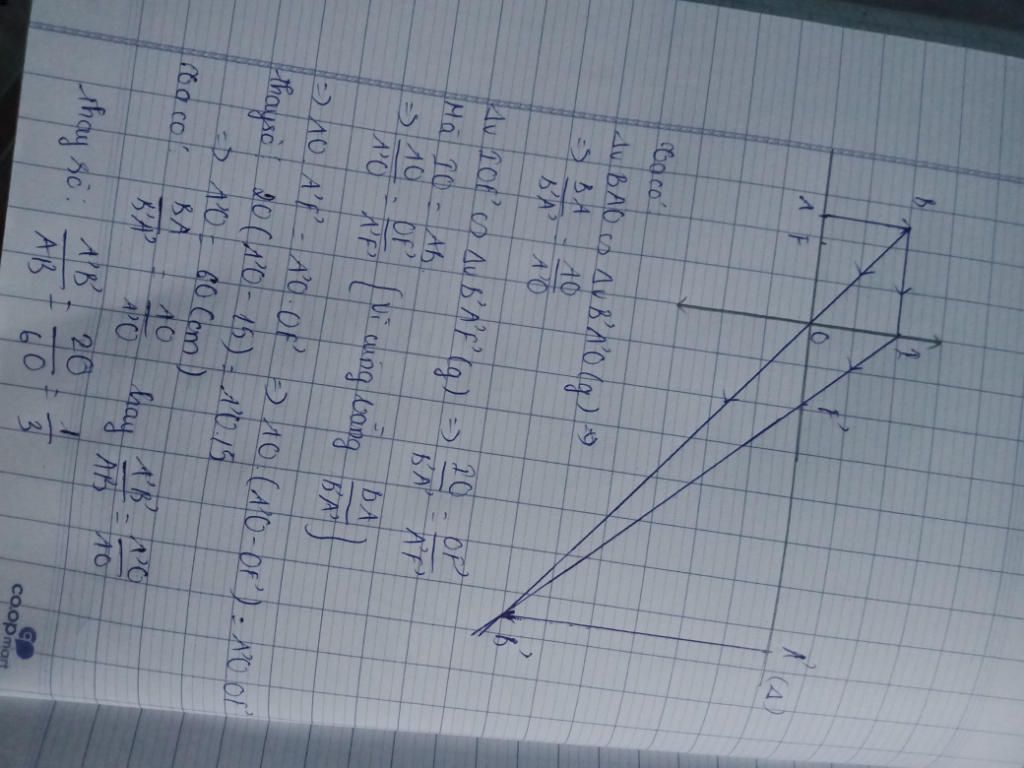 B
I
A
F
O
F'
A'
(Δ)
B'
Ta có:
Δv BAO ∽ Δv B'A'O (g) =>
=> BA/B'A' = AO/A'O
Δv IOF' ∽ Δv B'A'F' (g) => IO/B'A' = OF'/A'F'
Mà IO = AB
=> AO/A'O = OF'/A'F' (vì cùng bằng BA/B'A')
=> AO A'F' = A'O.OF' => AO.(A'O - OF') = A'O OF'
thay số: 20(A'O - 15) = A'O.15
=> A'O = 60 (cm)
Ta có: BA/B'A' = AO/A'O hay A'B'/AB = A'O/AO
thay số: A'B'/AB = 20/60 = 1/3
coopmart